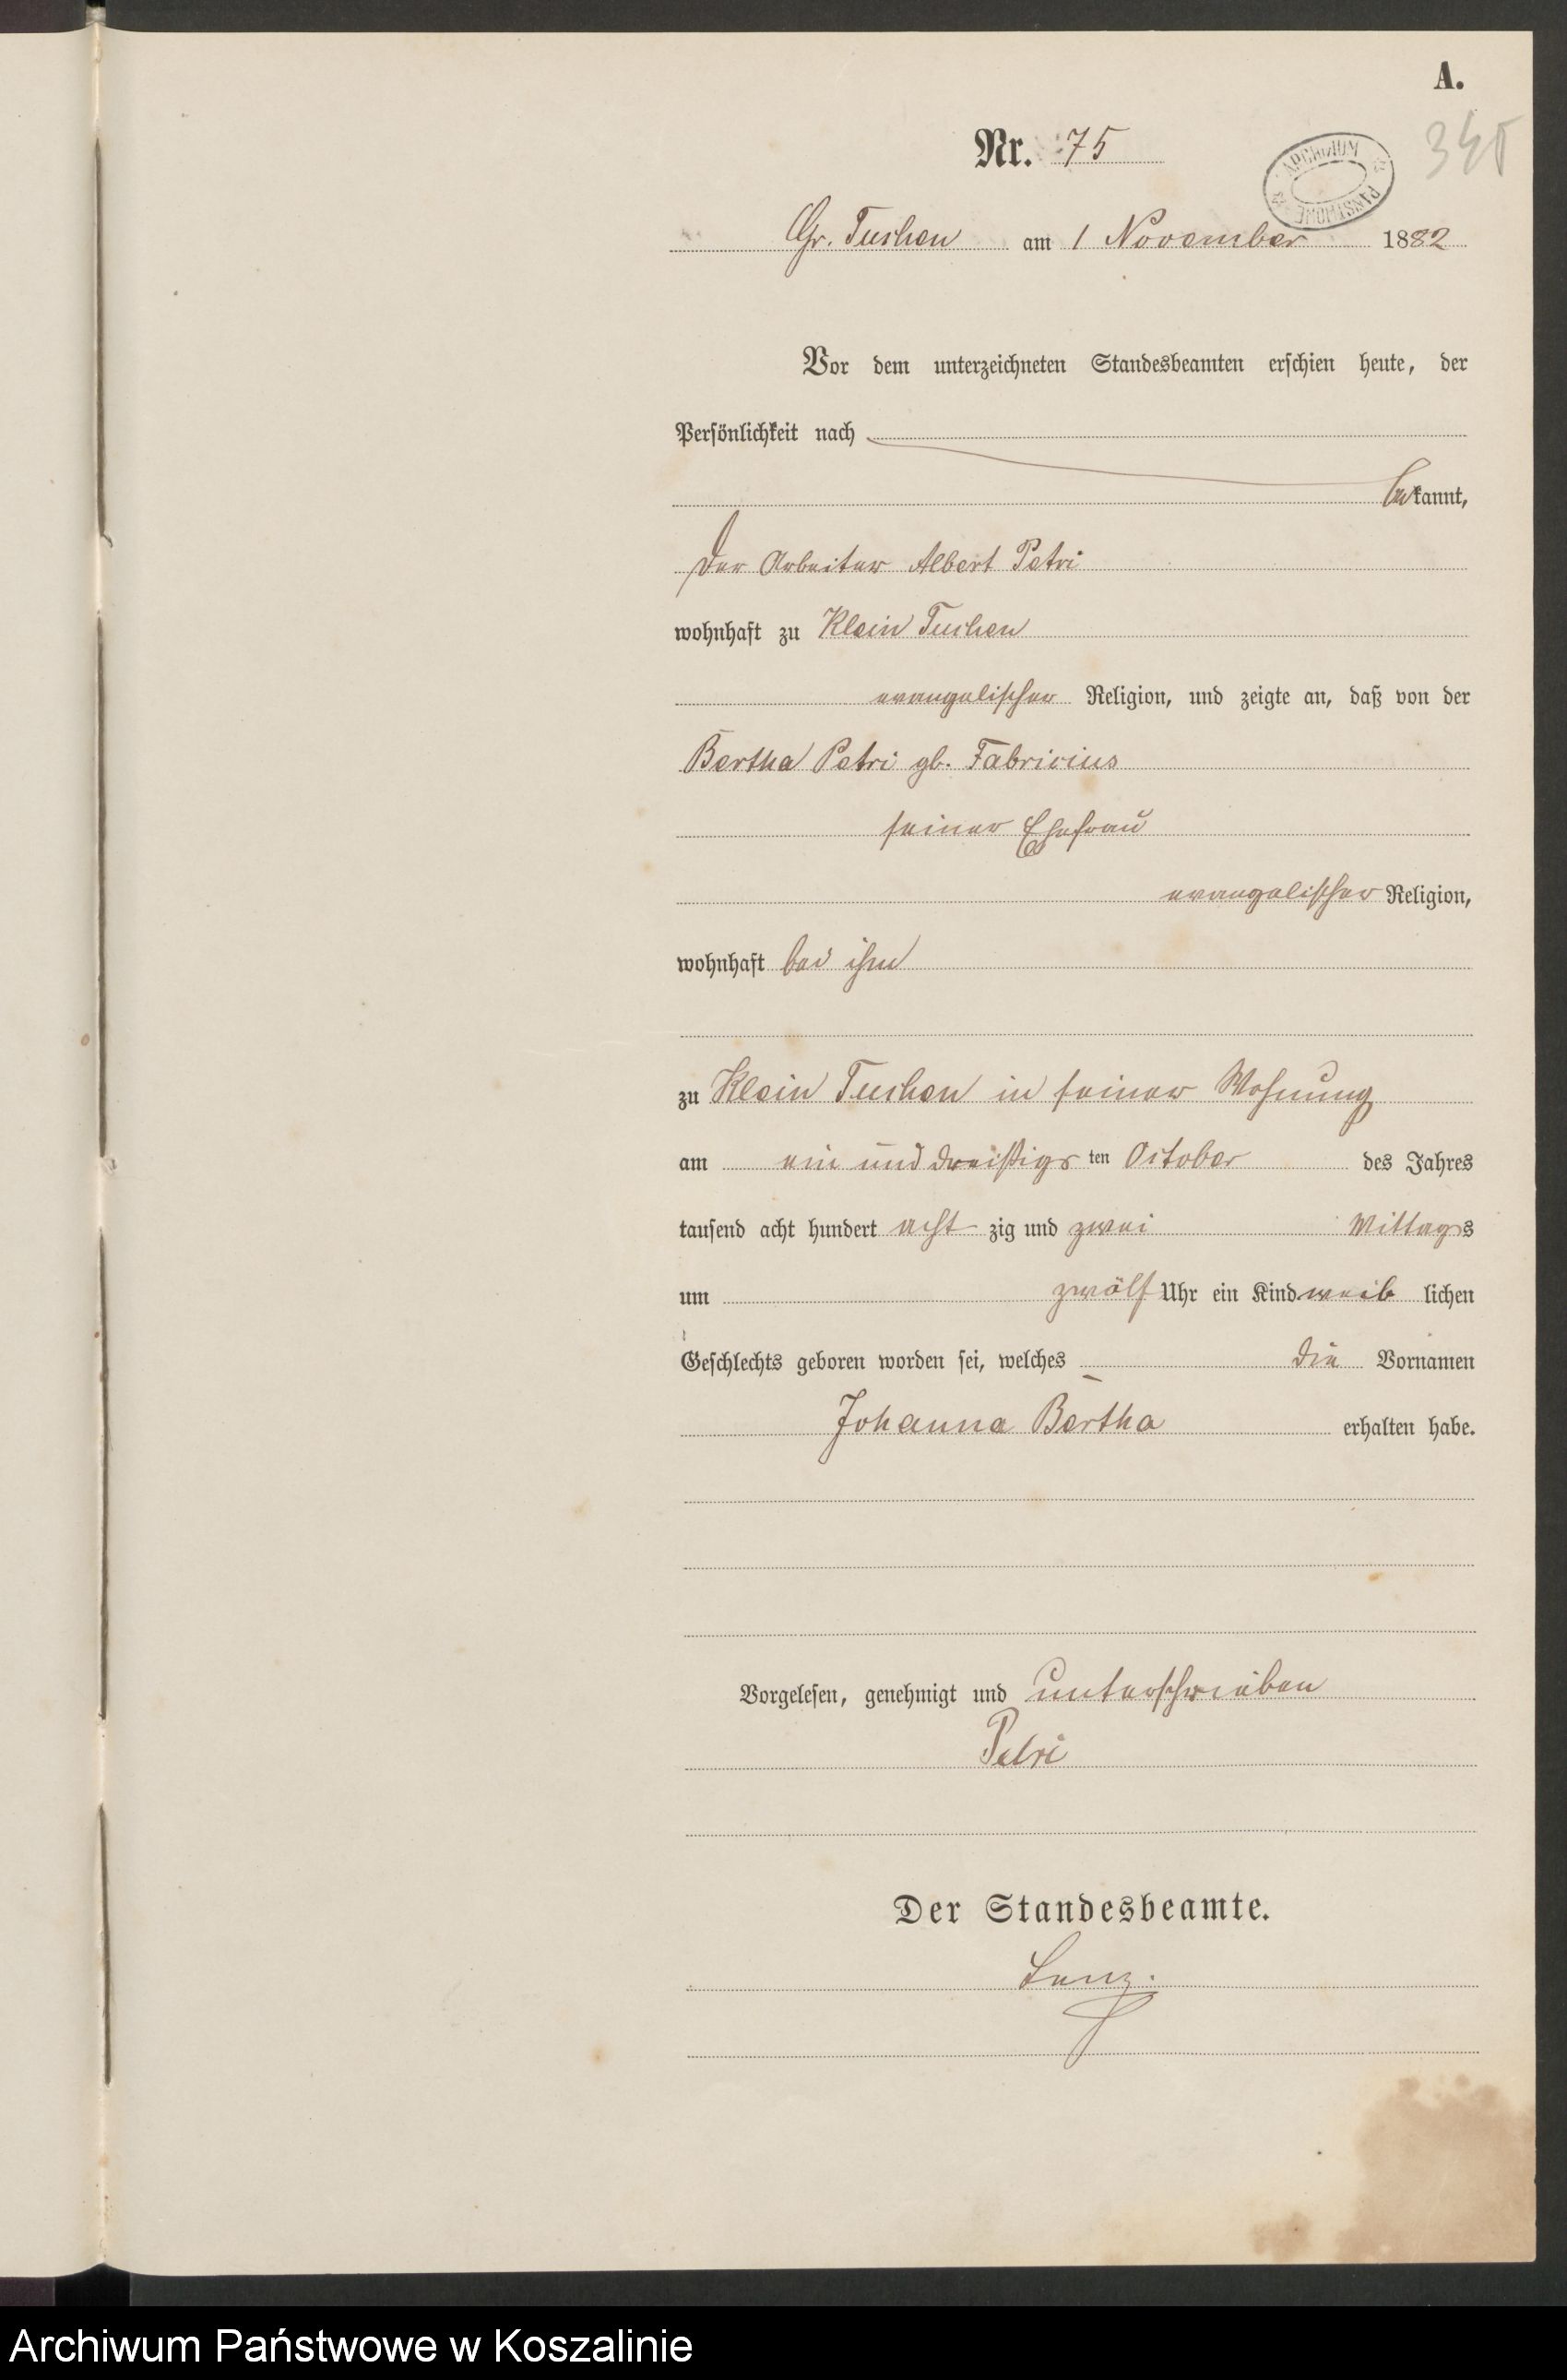 A.
Nr. 75
345
ARCHIWUM PAŃSTWOWE
Gr. Tuchen am 1 November 1882
Vor dem unterzeichneten Standesbeamten erschien heute, der
Persönlichkeit nach
bekannt,
der Arbeiter Albert Petri
wohnhaft zu Klein Tuchen
evangelischer Religion, und zeigte an, daß von der
Bertha Petri gb. Fabricius
seiner Ehefrau
evangelischer Religion,
wohnhaft bei ihm
zu Klein Tuchen in seiner Wohnung
am ein und dreißigsten October des Jahres
tausend acht hundert acht zig und zwei Mittags
um zwölf Uhr ein Kind weib lichen
Geschlechts geboren worden sei, welches die Vornamen
Johanna Bertha erhalten habe.
Vorgelesen, genehmigt und unterschrieben
Petri
Der Standesbeamte.
Lenz.
Archiwum Państwowe w Koszalinie